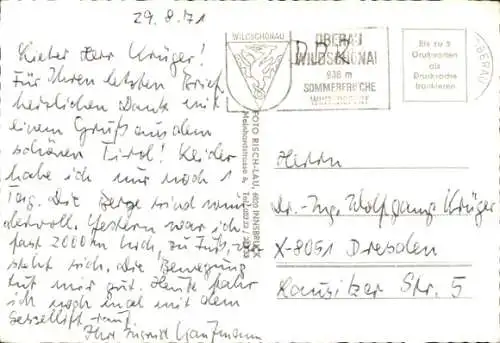 29.8.71
Lieber Herr Krüger!
Für Ihren letzten Brief
herzlichen Dank mit
einem Gruß aus dem
schönen Tirol! Leider
habe ich nur noch 1
Tag. Die Berge sind wun-
dervoll. Gestern war ich
fast 2000 m hoch, zu Fuß, ver-
steht sich. Die Bewegung
tut mir gut. Heute fahr
ich noch mal mit dem
Sessellift rauf.
Ihre
WILDSCHÖNAU
OBERAU
WILDSCHÖNAU
936 m
SOMMERFRISCHE
WINTERSPORT
DDR
OBERAU
Bis zu 5
Grußworten
als
Drucksache
frankieren
FOTO RISCH-LAU, 6020 INNSBRUCK
Herrn
Dr.-Ing. Wolfgang Krüger
X-8051 Dresden
Lausitzer Str. 5